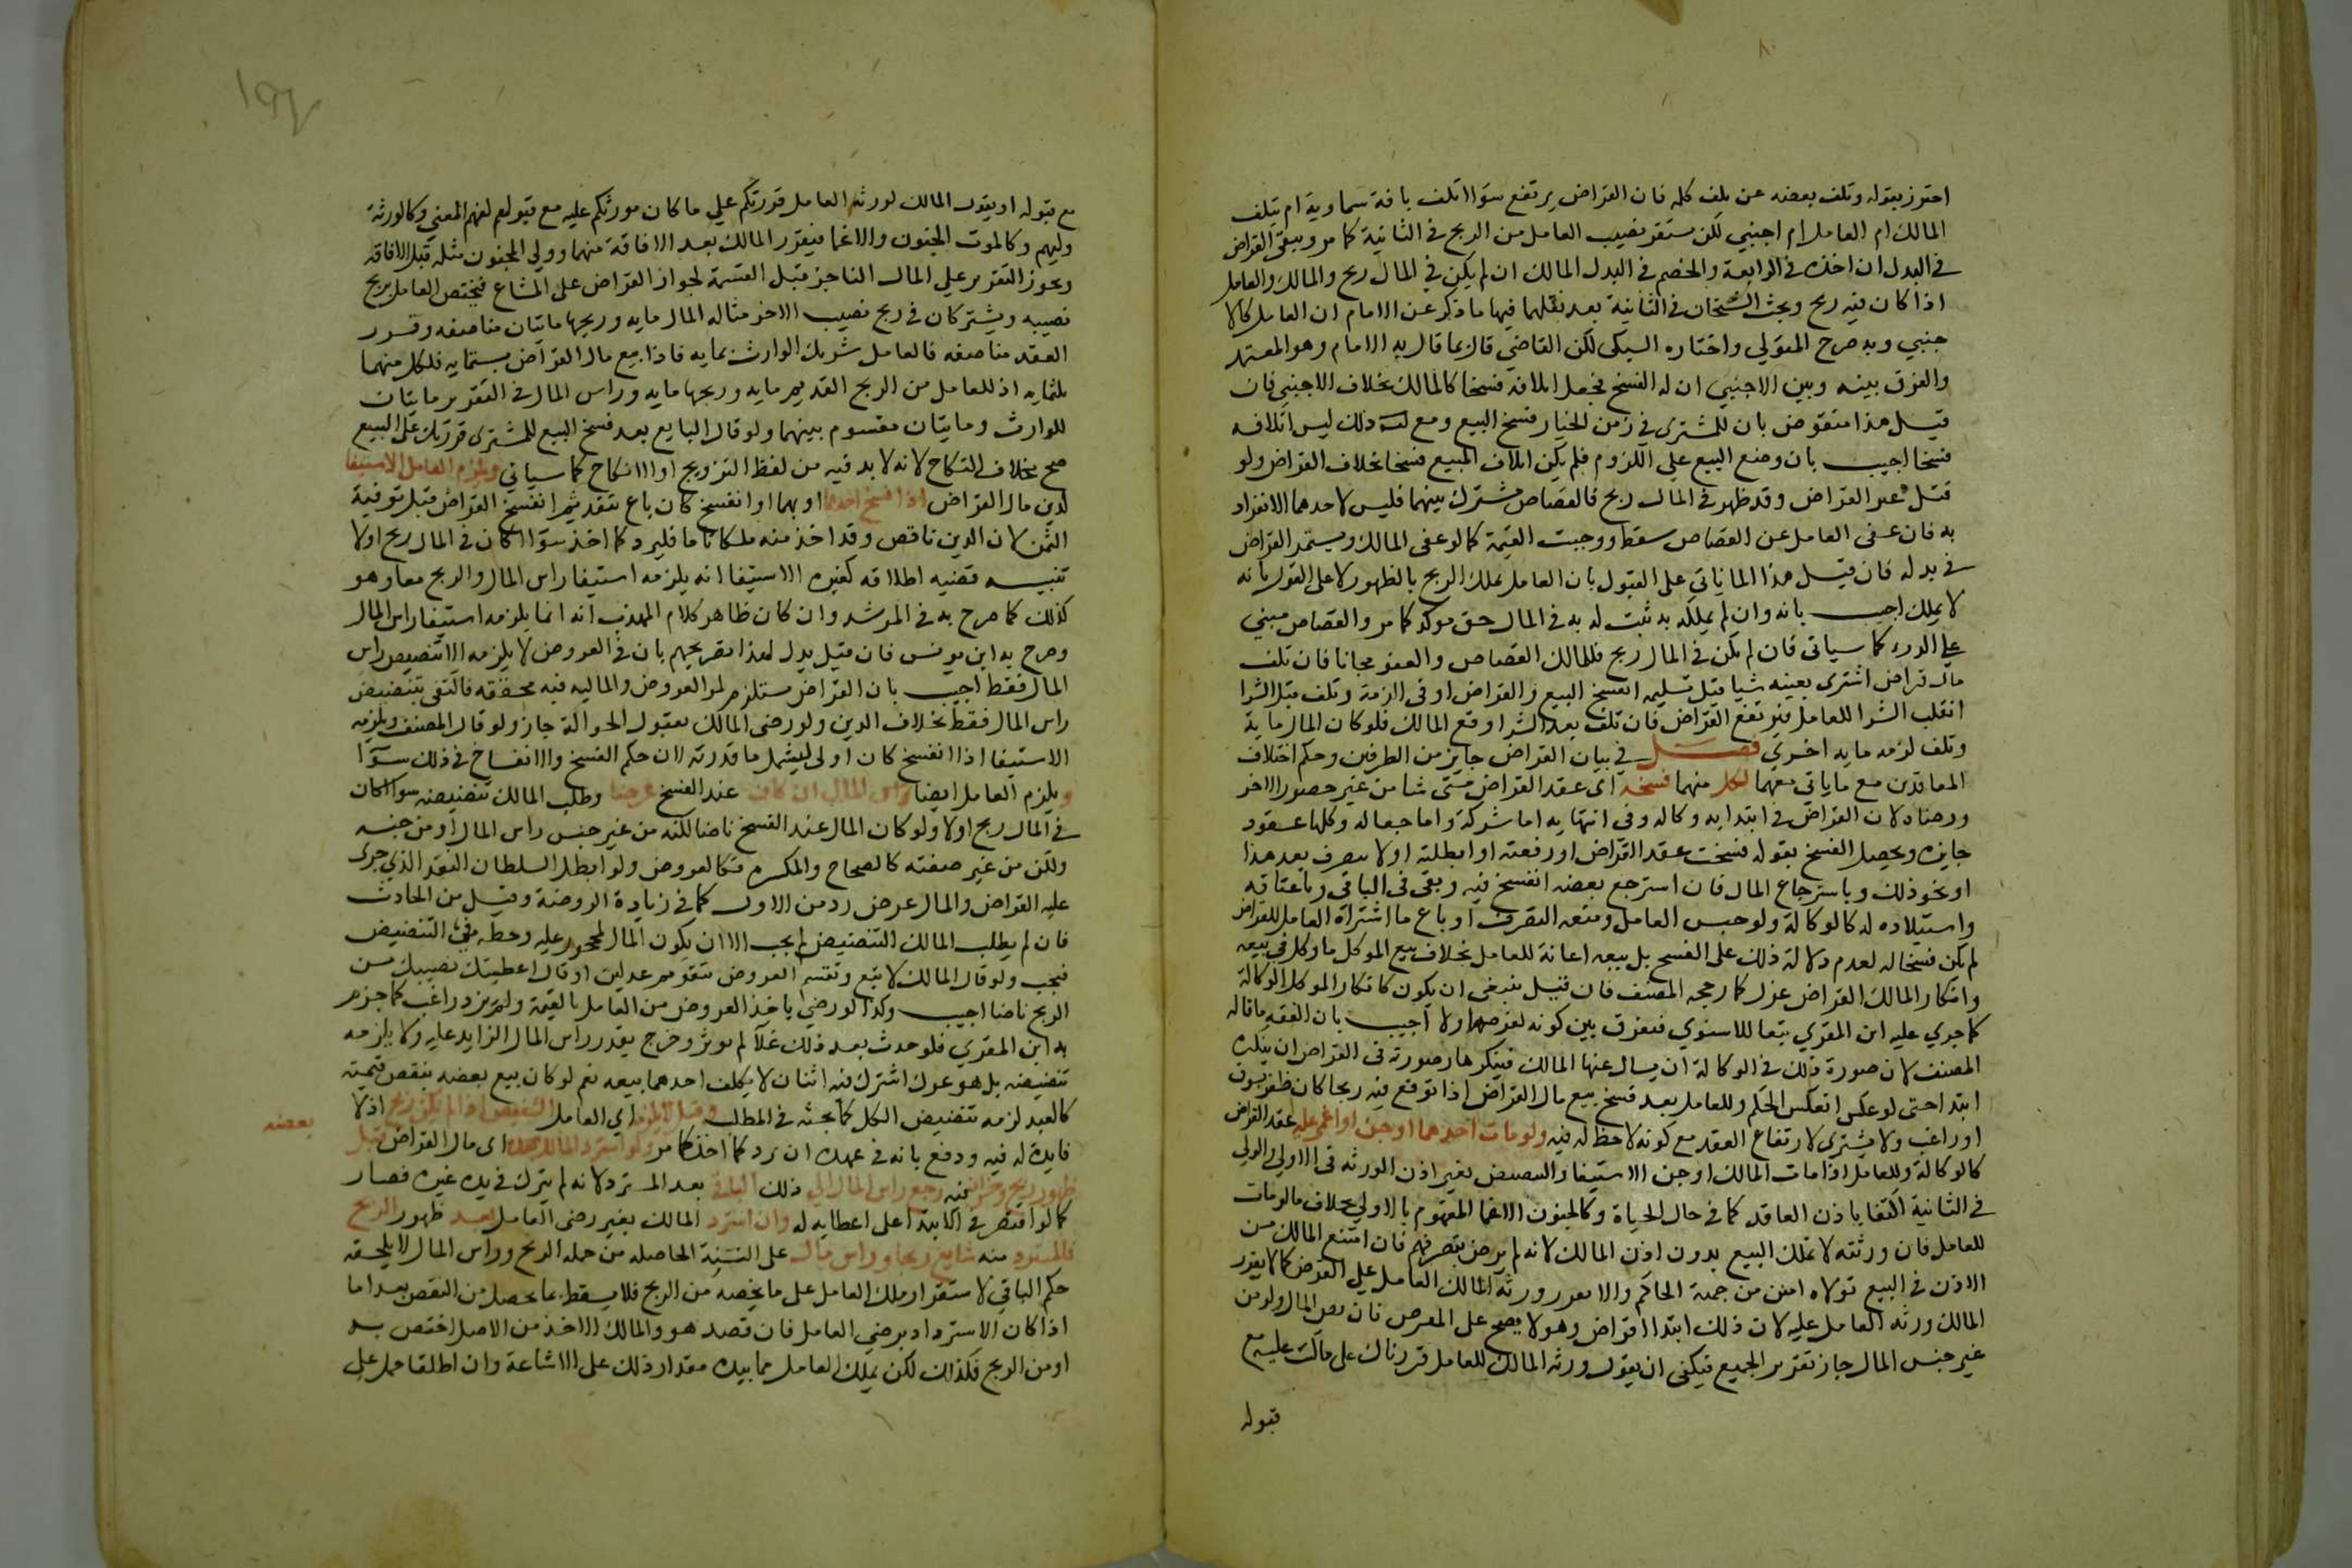 ٨٠
احترز بقوله وتلف بعضه عن تلف كله فان القراض يرتفع سوا اتلف بافة سماوية ام بتلف
المالك ام العامل ام اجنبي لكن ستقر نصيب العامل من الربح في الثانية كما مر ويبقى القراض
في البدل ان اخذه في الرابعة والخصم في البدل المالك ان لم يكن في المال ربح والمالك والعامل
اذا كان فيه ربح وبحث الشيخان في الثانية بعد نقلهما فيها ما ذكر عن الامام ان العامل كالا
جنبي وبه صرح المتولي واختاره السبكي لكن القاضي قال بما قال به الامام وهو المعتمد
والفرق بينه وبين الاجنبي ان له الفسخ فجعل اتلافه فسخا كالمالك بخلاف الاجنبي فان
قيل هذا منقوض بان للمشترى في زمن الخيار فسخ البيع ومع ذلك ليس اتلافه
فسخا اجيب بان وضع البيع على اللزوم فلم يكن اتلاف المبيع فسخا بخلاف القراض ولو
قتل عبد القراض وقد ظهر في المال ربح فالقصاص مشترك بينهما فليس لاحدهما الانفراد
به فان عفى العامل عن القصاص سقط ووجبت القيمة كما لو عفى المالك ويستمر القراض
في بدله فان قيل هذا انما ياتي على القول بان العامل يملك الربح بالظهور لا على القول بانه
لا يملك اجيب بانه وان لم يملكه به ثبت له به في المال حق موكد كما مر والقصاص مبني
على الدرء كما سياتي فان لم يكن في المال ربح فللمالك القصاص والعفو مجانا فان تلف
مال قراض اشترى بعينه شيا قبل تسليمه انفسخ البيع والقراض او في الذمة وتلف قبل الشرا
انقلب الشرا للعامل فيرتفع القراض فان تلف بعد الشرا وقع المالك فلو كان المال ماية
وتلف لزمه ماية اخري فصل في بيان القراض جايز من الطرفين وحكم اختلاف
المعاقدين مع ما ياتي معهما لكل منهما فسخه اى عقد القراض متى شا من غير حضور الاخر
ورضاه لان القراض في ابتدايه وكاله وفي انتهايه اما شركة واما جعاله وكلها عقود
جايزه ويحصل الفسخ بقوله فسخت عقد القراض او رفعته او ابطلته او لا تتصرف بعد هذا
او نحو ذلك وباسترجاع المال فان استرجع بعضه انفسخ فيه وبقى في الباقي وباعتاقه
واستيلاده له كالوكالة ولو حبس العامل ومنعه التصرف او باع ما اشتراه العامل للقراض
لم يكن فسخا له لعدم دلالة ذلك على الفسخ بل بيعه اعانة للعامل بخلاف بيع الموكل ما وكل في بيعه
وانكار المالك القراض عزل كما رجحه المصنف فان قيل ينبغي ان يكون كانكار الموكل الوكالة
كما جري عليه ابن المقري تبعا للاسنوي فيفرق بين كونه لغرض اولا اجيب بان الفقه ما قاله
المصنف لان صورة ذلك في الوكالة ان يسال عنها المالك فينكرها وصورته في القراض ان ينكره
ابتدا حتى لو عكس انعكس الحكم وللعامل بعد فسخ بيع مال القراض اذا توقع فيه ربحا كان ظفر بسوق
او راغب ولا يشترى لارتفاع العقد مع كونه لاحظ له فيه ولو مات احدهما او جن او اغمي عليه عقد القراض
كالوكالة وللعامل اذا مات المالك او جن الاستيفا والتنضيض بغير اذن الورثه في الاولى والولي
في الثانية اكتفا باذن العاقد كما في حال الحياة وكالجنون الاغما المفهوم بالاولي بخلاف ما لو مات
للعامل فان ورثته لا تملك البيع بدون اذن المالك لانه لم يرض بتصرفهم فان امتنع المالك من
الاذن في البيع تولاه امين من جهة الحاكم ولا يقرر ورثة المالك العامل على العرض كما لا يقرر
المالك ورثه العامل عليه لان ذلك ابتدا قراض وهو لا يصح على العرض فان نض المال ولو من
غير جنس المال جاز تقرير الجميع فيكفي ان يقول ورثه المالك للعامل قررناك على ما كنت عليه مع
قبوله
١٩٢
مع قبوله او يقول المالك لورثه العامل قررتكم علي ما كان مورثكم عليه مع قبولهم لفهم المعني وكالورثة
وليهم وكالموت الجنون والاغما فيقرر المالك بعد الافاقة منهما وولي المجنون مثله قبل الافاقه
ويجوز التقرير علي المال الناجز قبل القسمة لجواز القراض على المشاع فيختص العامل بربح
نصيبه ويشتركان في ربح نصيب الاخر مثاله المال مايه وربحها مايتان مناصفه وقرر
العقد مناصفه فالعامل شريك الوارث بمايه فاذا بيع مال القراض بستمايه فلكل منهما
ثلثمايه اذ للعامل من الربح القديم مايه وربحها مايه وراس المال في التقرير مايتان
للوارث ومايتان مقسوم بينهما ولو قال البايع بعد فسخ البيع للمشترى قررتك على البيع
صح بخلاف النكاح لانه لا بد فيه من لفظ التزويج او الانكاح كما سياتي ويلزم العامل الاستيفا
لدين مال القراض اذا فسخ احدهما او بهما او انفسخ كان باع بنقد ثم انفسخ القراض قبل توفية
الثمن لان الدين ناقص وقد اخذ منه ملكا تاما فليرد كما اخذ سوا اكان في المال ربح اولا
تنبيه قضيه اطلاقه كغيره الاستيفا انه يلزمه استيفا راس المال والربح معا وهو
كذلك كما صرح به في المرشد وان كان ظاهر كلام المهذب انه انما يلزمه استيفا راس المال
وصرح به ابن يونس فان قيل يدل لهذا تصريحهم بان في العروض لا يلزمه الا تنضيض راس
المال فقط اجيب بان القراض مستلزم لهو العروض والماليه فيه محققه فاكتفى بتنضيض
راس المال فقط بخلاف الدين ولو رضى المالك بقبول الحوالة جاز ولو قال المصنف ويلزمه
الاستيفا اذا انفسخ كان اولى ليشمل ما قدرته لان حكم الفسخ والانفساخ في ذلك سوآ
ويلزم العامل ايضا راس المال ان كان عند الفسخ عرضا وطلب المالك تنضيضه سوا اكان
في المال ربح اولا ولو كان المال عند الفسخ ناضا لكنه من غير جنس راس المال او من جنسه
ولكن من غير صفته كالصحاح والمكسره فكالعروض ولو ابطل السلطان النقد الذي جرى
عليه القراض والمال عرض رد من الاول كما في زيادة الروضة وقيل من الحادث
فان لم يطلب المالك التنضيض لم يجب الا ان يكون المال لمحجور عليه وحظه في التنضيض
فيجب ولو قال المالك لا تبع وتقسم العروض بتقويم عدلين او قال اعطيتك نصيبك من
الربح ناضا اجيب وكذا لو رضي ياخذ العروض من العامل بالقيمة ولم يزد راغب كما جزم
به ابن المقري فلو حدث بعد ذلك غلآ لم يوثر وخرج بقدر راس المال الزايد عليه ولا يلزمه
تنضيضه بل هو عرض اشترك فيه اثنان لا يكلف احدهما بيعه نعم لو كان بيع بعضه ينقص قيمته
كالعبد لزمه تنضيض الكل كما بحثه في المطلب وقيل لا يلزم اي العامل التنضيض اذا لم يكن ربح اذ لا
فايدة له فيه ودفع بانه في عهدة ان يرد كما اخذ كما مر ولو استرد المالك بعضه اى مال القراض قبل
بعضه
ظهور ربح وخسران فيه رجع راس المال الي ذلك الباقي بعد المسترد لانه لم يترك في يده غيره فصار
كما لو اقتصر في الابتدا على اعطايه له وان استرد المالك بغير رضى العامل بعد ظهور الربح
فالمسترد منه شايع ربحا وراس مال على النسبة الحاصله من جمله الربح وراس المال لا يلحقه
حكم الباقي لاستقرار ملك العامل على ما يخصه من الربح فلا يسقط بما يحصل من النقص بعد اما
اذا كان الاسترداد برضي العامل فان قصد هو والمالك الاخذ من الاصل اختص به
او من الربح فكذلك لكن يملك العامل مما بيده مقدار ذلك على الاشاعة وان اطلقا حمل على